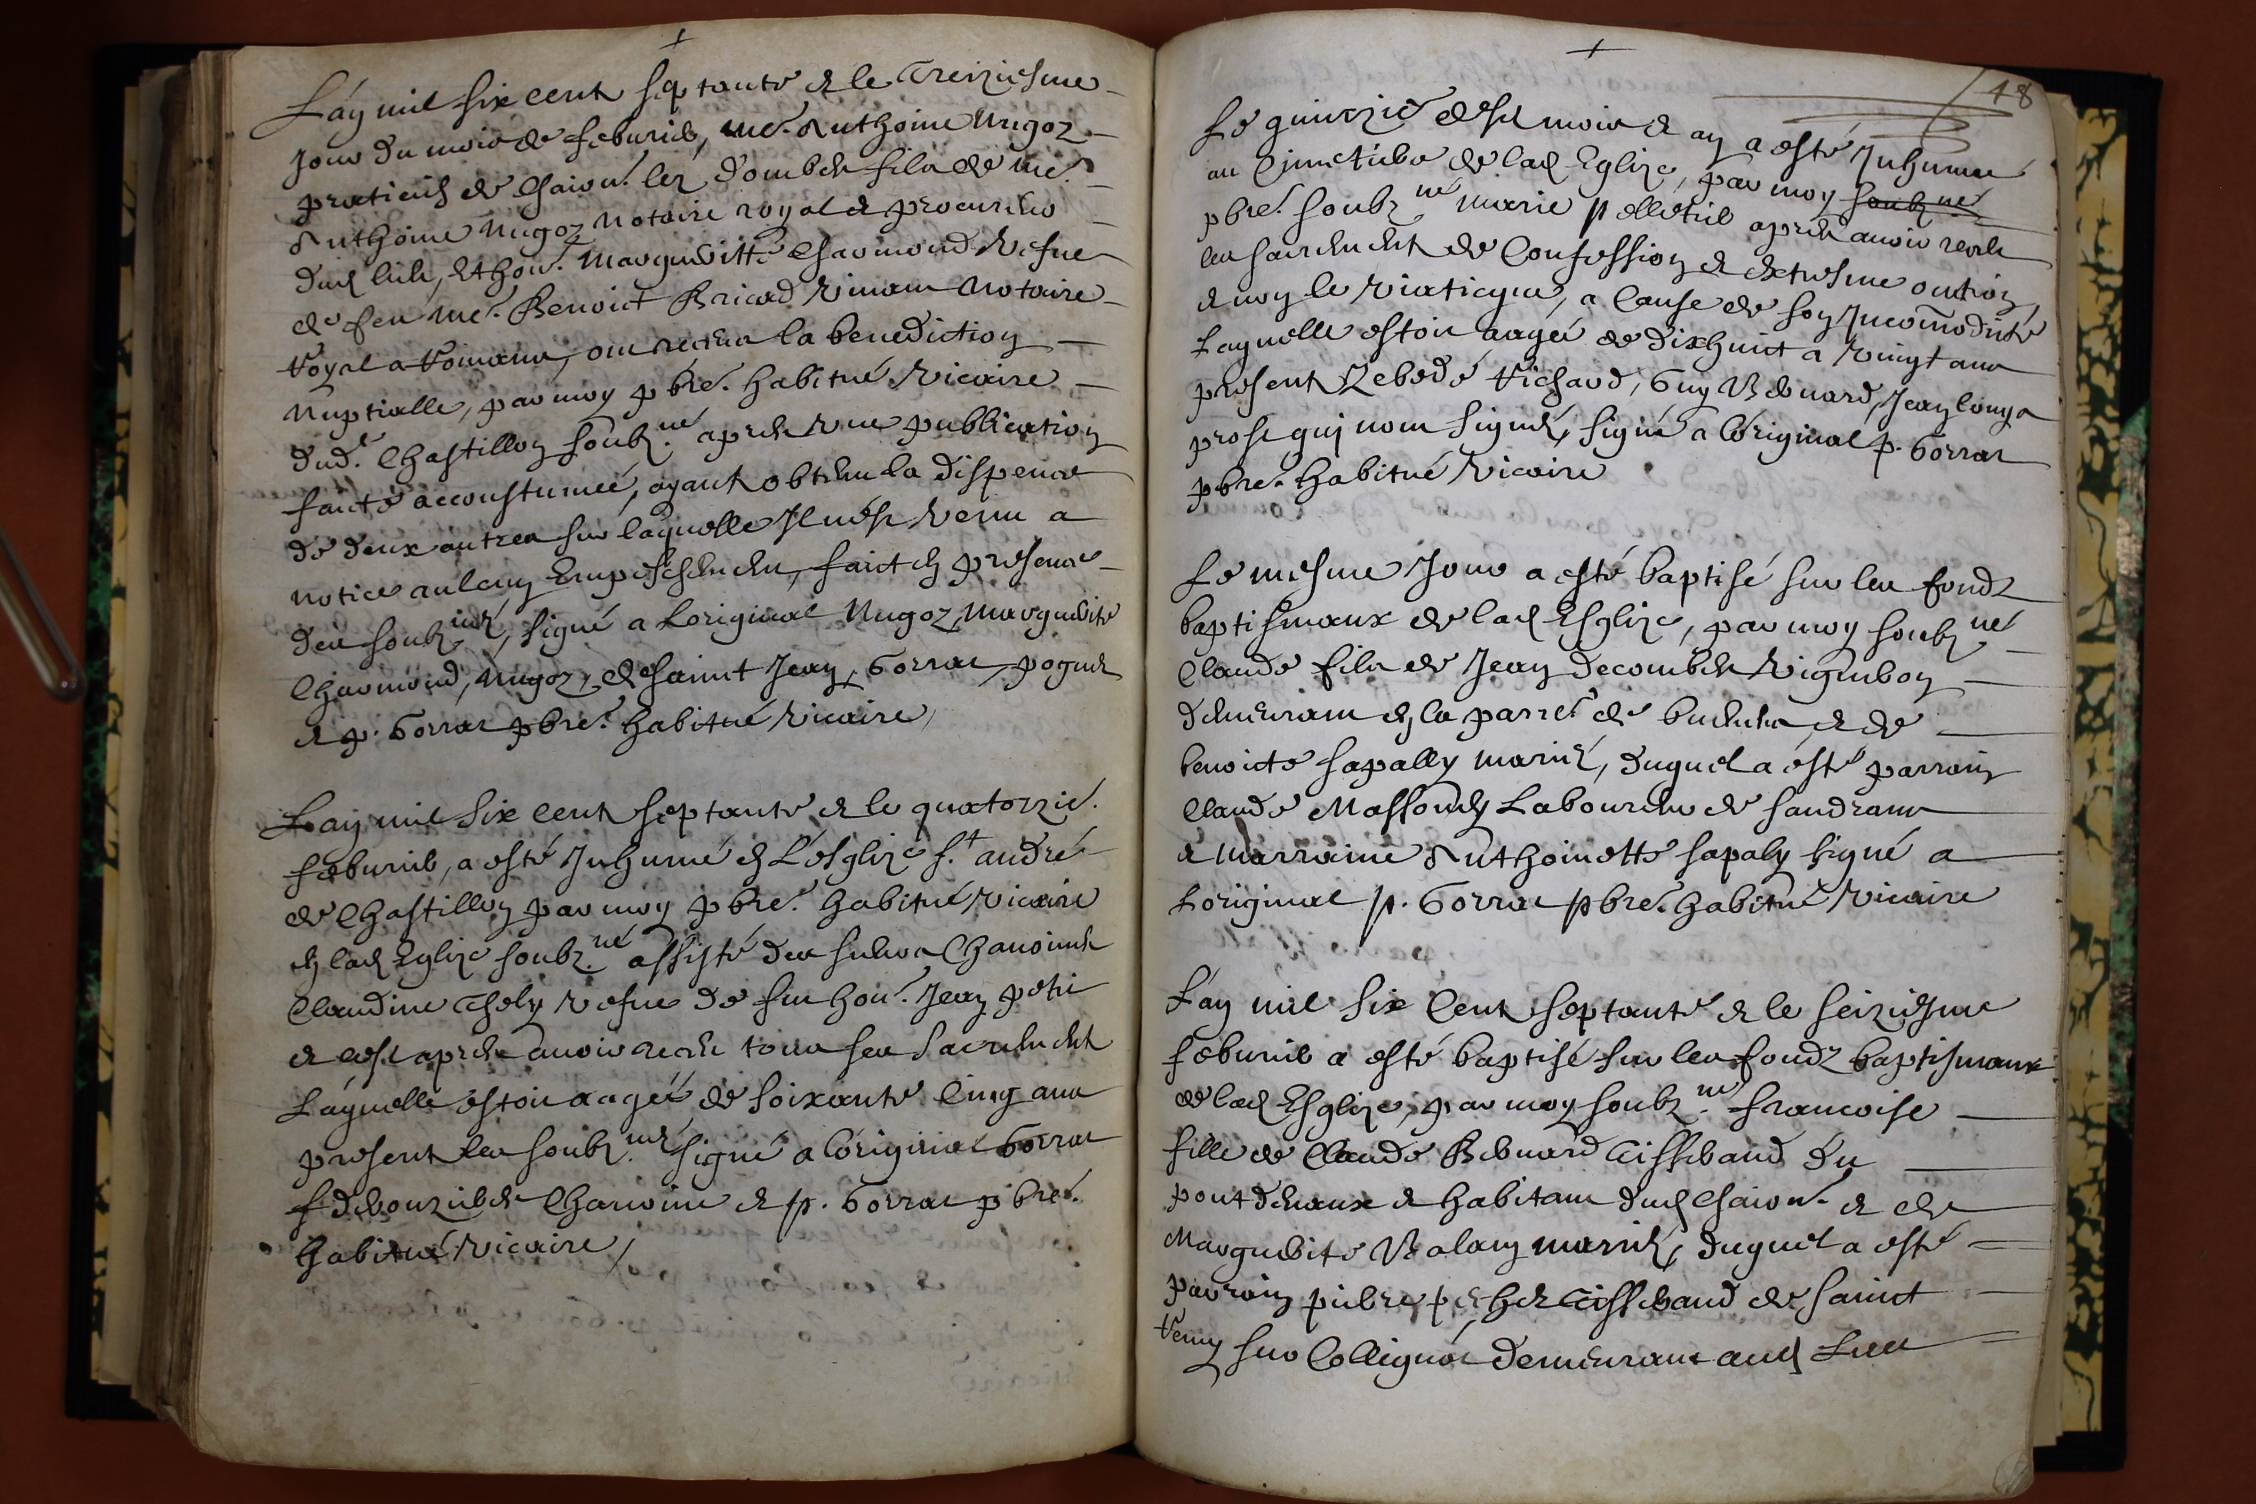 +
L'an mil six cent septante et le treiziesme
jour du mois de feburier, me. Anthoine Nugoz
praticien de Chaion. lez Dombes fils de me.
Anthoine Nugoz notaire royal et procureur
dud lieu, et hon. Margueritte Charmond vefue
de feu me. Benoict Bricod vivant notaire
royal a romans, ont receu la benediction
nuptialle, par moy pbre. habitué vicaire
dud. Chastillon soubz.né apres une publication
faicte accoustumée, ayant obtenu la dispence
de deux autres sur laquelle Il nest venu a
notice aulcun Empeschement, faict en presence
des soubz.nés, signé a Loriginal Nugoz, Marguerite
Charmond, Nugoz, de Saint Jean, Gorrat,
et p. Gorrat pbre. habitué vicaire,
Lan mil six cent septante et le quatorzie.
feburier, a esté Inhumé en L'esglize s.t andré
de Chastillon par moy pbre. habitué vicaire
en lad Eglize soubz.né assisté des sieurs Chanoines
Claudine Thely vefue de feu hon. Jean petit
et cest apres avoir receu tous ses sacrements
Laquelle estoit aagée de soixante cinq ans
present les soubz.nés signé a l'original Gorrat
Chanoine et p. Gorrat pbre.
habitué vicaire,
+
18
Le quinzie. desd mois et an a esté Inhumée
au Cimetiere de lad Eglize, par moy soubz.né
pbre. soubz.né Marie pelletier apres avoir receu
les sacrement de Confession et extresme onction,
et non le viaticque, a cause de son Incomodité
Laquelle estoit aagée de dixhuict a vingt ans
present Zebedé Richard, Guy Benard, Jean Longa
prost qui nont signés, signé a l'original p. Gorrat
pbre. habitué vicaire
Le mesme Jour a esté baptisé sur les fondz
baptismaux de lad Esglize, par moy soubz.né
Claude fils de Jean Decombes vigneron
demeurant en la parre. de et de
benoicte sapally mariés, duquel a esté parrain
Claude Massond Laboureur de sandrans
et marraine Anthoinette sapaly signé a
Loriginal p. Gorrat pbre. habitué vicaire
L'an mil six cent septante et le seiziesme
feburier a esté baptisé sur les fondz baptismaux
de lad Esglize, par moy soubz.né francoise
fille de Claude Bernard Tisserand du
pont de vaux et habitant dud Chaion. et de
Marguerite Balany mariés, duquel a esté
parrain pierre Tisserand de Sainct
remy sur Collignat demeurant aud Lieu